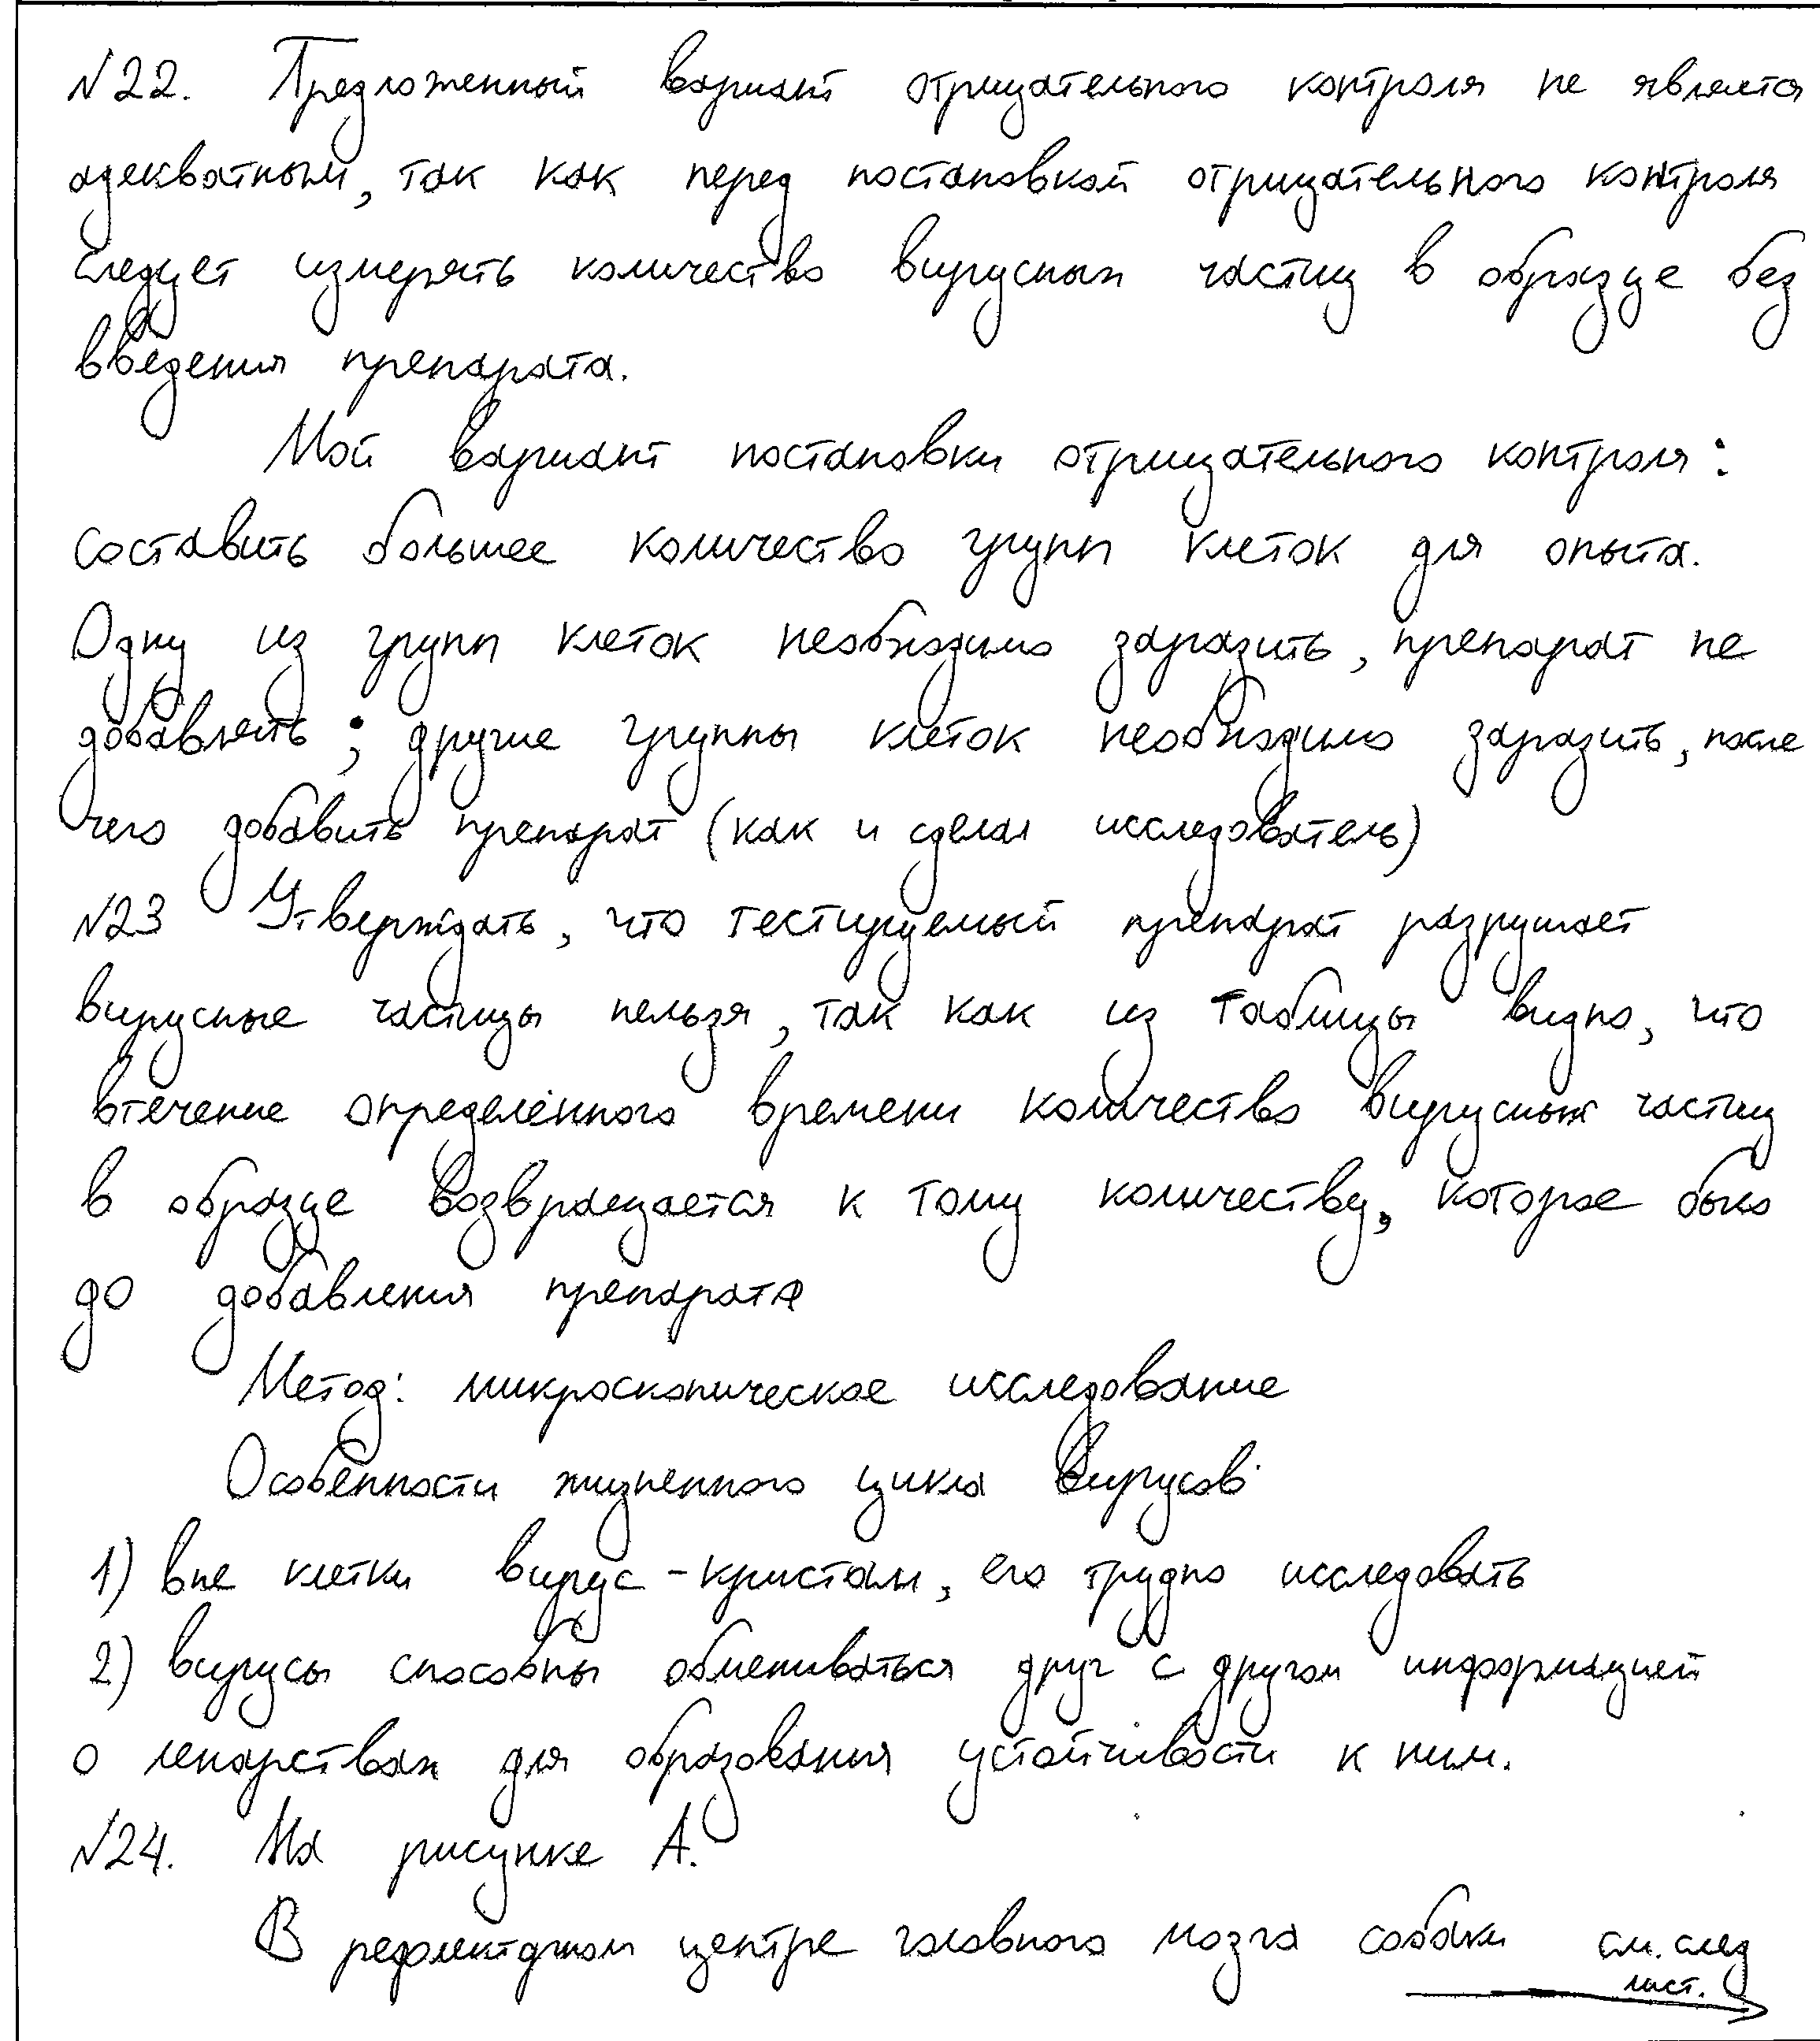 №22. Предложенный вариант отрицательного контроля не является
адекватным, так как перед постановкой отрицательного контроля
следует измерять количество вирусных частиц в образце без
введения препарата.
Мой вариант постановки отрицательного контроля:
составить большее количество групп клеток для опыта.
Одну из групп клеток необходимо заразить, препарат не
добавлять; другие группы клеток необходимо заразить, после
чего добавить препарат (как и сделал исследователь)
№23 Утверждать, что тестируемый препарат разрушает
вирусные частицы нельзя, так как из таблицы видно, что
втечение определённого времени количество вирусных частиц
в образце возвращается к тому количеству, которое было
до добавления препарата
Метод: микроскопическое исследование
Особенности жизненного цикла вирусов
1) вне клетки вирус - кристалл, его трудно исследовать
2) вирусы способны обмениваться друг с другом информацией
о лекарствах для образования устойчивости к ним.
№24. На рисунке А.
В рефлекторном центре головного мозга собаки см. след
лист.